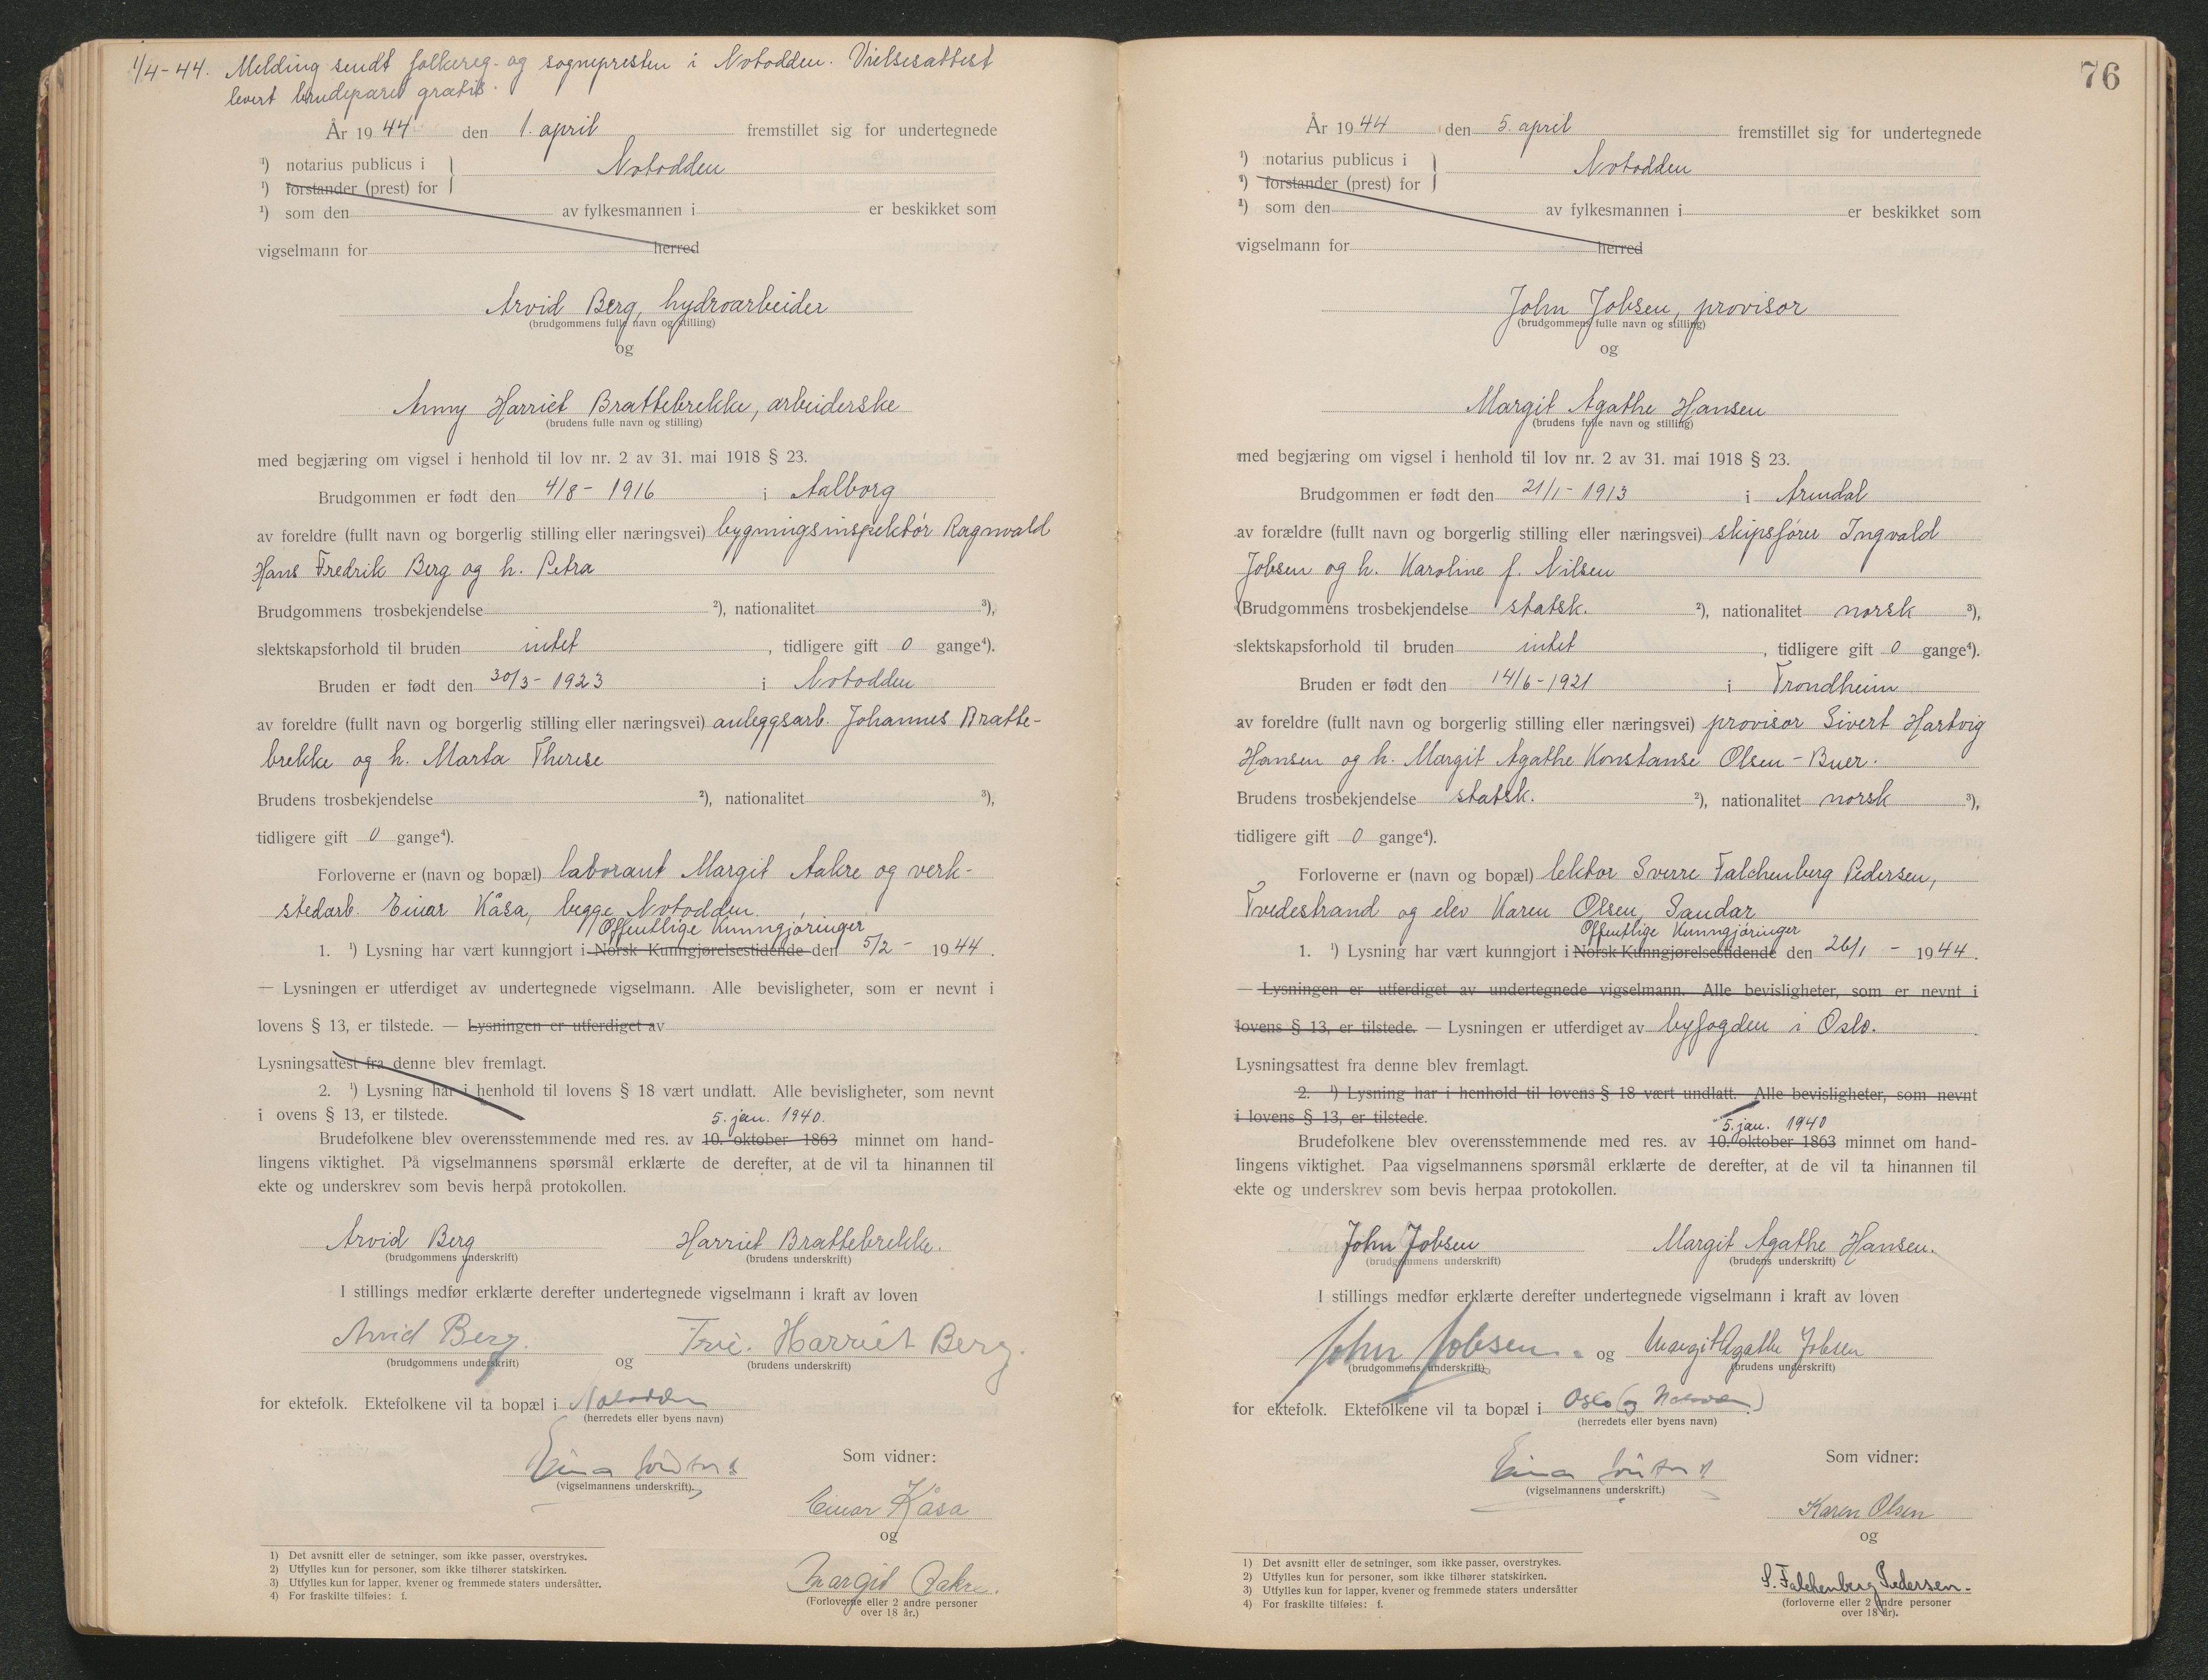 1/4-44. Melding sendt folkereg. og sognepresten i Notodden. Vielsesattest
levert brudeparet gratis.
År 1944 den 1. april fremstillet sig for undertegnede
¹) notarius publicus i } Notodden
¹) forstander (prest) for
¹) som den av fylkesmannen i er beskikket som
vigselmann for herred
Arvid Berg, hydroarbeider
(brudgommens fulle navn og stilling)
og
Anny Harriet Brattebrekke, arbeiderske
(brudens fulle navn og stilling)
med begjæring om vigsel i henhold til lov nr. 2 av 31. mai 1918 § 23.
Brudgommen er født den 4/8 - 1916 i Aalborg
av foreldre (fullt navn og borgerlig stilling eller næringsvei) bygningsinspektør Ragnvald
Hans Fredrik Berg og h. Petra
Brudgommens trosbekjendelse ²), nationalitet ³),
slektskapsforhold til bruden intet, tidligere gift 0 gange⁴).
Bruden er født den 30/3 - 1923 i Notodden
av foreldre (fullt navn og borgerlig stilling eller næringsvei) anleggsarb. Johannes Bratte-
brekke og h. Marta Therese
Brudens trosbekjendelse ²), nationalitet ³),
tidligere gift 0 gange⁴).
Forloverne er (navn og bopæl) laborant Margit Aakre og verk-
stedarb. Einar Kåsa, begge Notodden.
Offentlige Kunngjøringer
1. ¹) Lysning har vært kunngjort i Norsk Kunngjørelsestidende den 5/2 - 1944.
— Lysningen er utferdiget av undertegnede vigselmann. Alle bevisligheter, som er nevnt i
lovens § 13, er tilstede. — Lysningen er utferdiget av
Lysningsattest fra denne blev fremlagt.
2. ¹) Lysning har i henhold til lovens § 18 vært undlatt. Alle bevisligheter, som nevnt
i ovens § 13, er tilstede.
5. jan. 1940.
Brudefolkene blev overensstemmende med res. av 10. oktober 1863 minnet om hand-
lingens viktighet. På vigselmannens spørsmål erklærte de derefter, at de vil ta hinannen til
ekte og underskrev som bevis herpå protokollen.
Arvid Berg Harriet Brattebrekke.
(brudgommens underskrift) (brudens underskrift)
I stillings medfør erklærte derefter undertegnede vigselmann i kraft av loven
Arvid Berg. og Harriet Berg.
(brudgommens underskrift) (brudens underskrift)
for ektefolk. Ektefolkene vil ta bopæl i Notodden
(herredets eller byens navn)
Som vidner:
(vigselmannens underskrift).
Einar Kåsa
og
Margit Aakre.
(Forloverne eller 2 andre personer
over 18 år.)
1) Det avsnitt eller de setninger, som ikke passer, overstrykes.
2) Utfylles kun for personer, som ikke tilhører statskirken.
3) Utfylles kun for lapper, kvener og fremmede staters undersåtter.
4) For fraskilte tilføies: f.
76
År 1944 den 5. april fremstillet sig for undertegnede
¹) notarius publicus i } Notodden
¹) forstander (prest) for
¹) som den av fylkesmannen i er beskikket som
vigselmann for herred
John Jobsen, provisor
(brudgommens fulle navn og stilling)
og
Margit Agathe Hansen
(brudens fulle navn og stilling)
med begjæring om vigsel i henhold til lov nr. 2 av 31. mai 1918 § 23.
Brudgommen er født den 21/1 - 1913 i Arendal
av forældre (fullt navn og borgerlig stilling eller næringsvei) skipsfører Ingvald
Jobsen og h. Karoline f. Nilsen
(Brudgommens trosbekjendelse statsk. ²), nationalitet norsk ³),
slektskapsforhold til bruden intet, tidligere gift 0 gange⁴).
Bruden er født den 14/6 - 1921 i Trondheim
av foreldre (fullt navn og borgerlig stilling eller næringsvei) provisor Sivert Hartvig
Hansen og h. Margit Agathe Konstanse Olsen - Buer.
Brudens trosbekjendelse statsk. ²), nationalitet norsk ³),
tidligere gift 0 gange⁴).
Forloverne er (navn og bopæl) lektor Sverre Falchenberg Pedersen,
Tvedestrand og elev Karen Olsen, Sandar
Offentlige Kunngjøringer
1. ¹) Lysning har vært kunngjort i Norsk Kunngjørelsestidende den 26/1 - 1944.
— Lysningen er utferdiget av undertegnede vigselmann. Alle bevisligheter, som er nevnt i
lovens § 13, er tilstede. — Lysningen er utferdiget av byfogden i Oslo.
Lysningsattest fra denne blev fremlagt.
2. ¹) Lysning har i henhold til lovens § 18 vært undlatt. Alle bevisligheter, som nevnt
i lovens § 13, er tilstede.
5. jan. 1940
Brudefolkene blev overensstemmende med res. av 10. oktober 1863 minnet om hand-
lingens viktighet. Paa vigselmannens spørsmål erklærte de derefter, at de vil ta hinannen til
ekte og underskrev som bevis herpaa protokollen.
John Jobsen Margit Agathe Hansen.
(brudgommens underskrift) (brudens underskrift)
I stillings medfør erklærte derefter undertegnede vigselmann i kraft av loven
John Jobsen. og Margit Agathe Jobsen
(brudgommens underskrift) (brudens underskrift)
for ektefolk. Ektefolkene vil ta bopæl i Oslo (og Notodden)
(herredets eller byens navn)
Som vidner:
(vigselmannens underskrift.)
Karen Olsen
og
S. Falchenberg Pedersen.
(forloverne eller 2 andre personer
over 18 år).
1) Det avsnitt eller de setninger, som ikke passer, overstrykes.
2) Utfylles kun for personer, som ikke tilhører statskirken.
3) Utfylles kun for lapper, kvener og fremmede staters undersåtter
4) For fraskilte tilføies: f.